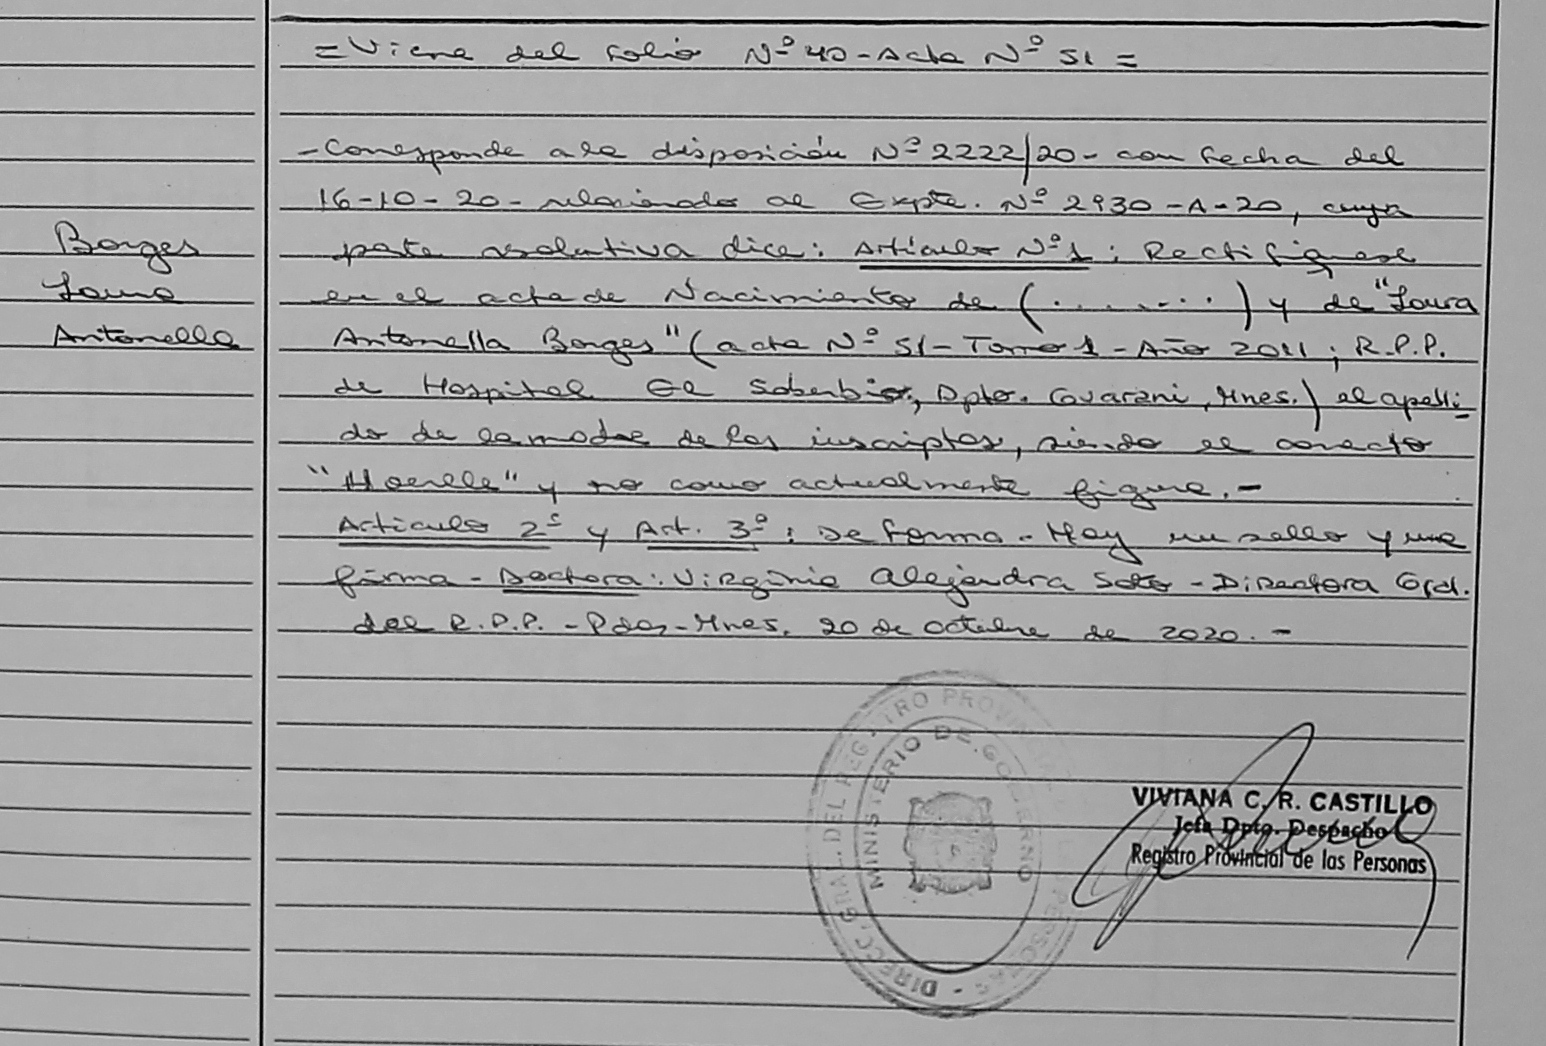 = Viene del Folio Nº 40 - Acta Nº 51 =
- Corresponde a la disposición Nº 2222/20 - con fecha del
16-10-20 - relacionado al Expte. Nº 2930-A-20, cuya
Borges
parte resolutiva dice: Artículo Nº 1: Rectifíquese
Laura
en el acta de Nacimiento de (........) y de "Laura
Antonella
Antonella Borges" (acta Nº 51 - Tomo 1 - Año 2011; R.P.P.
de Hospital El Soberbio, Dpto. Guaraní, Mnes.) el apelli-
do de la madre de los inscriptos, siendo el correcto
"Hoerlle" y no como actualmente figura.-
Artículo 2º y Art. 3º: De forma - Hay un sello y una
firma - Doctora: Virginia Alejandra Soto - Directora Gral.
del R.P.P. - Pdas - Mnes. 20 de octubre de 2020.-
DIRECC. GRAL. DEL REGISTRO PROVINCIAL DE LAS PERSONAS
MINISTERIO DE GOBIERNO
VIVIANA C. R. CASTILLO
Jefa Dpto. Despacho
Registro Provincial de las Personas